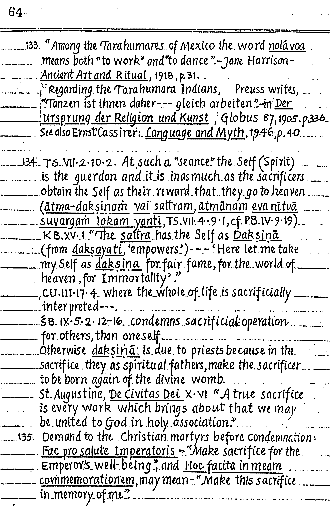 64
133. "Among the Tarahumares of Mexico the word nolávoa
means both "to work" and "to dance".–Jane Harrison–
Ancient Art and Ritual, 1918, p.31.
"Regarding the Tarahumara Indians, Preuss writes,
"Tanzen ist ihnen daher--- gleich arbeiten".–in Der
Ursprung der Religion und Kunst, Globus 87, 1905. p.336.
See also Ernst Cassirer: Language and Myth, 1946, p.40.
134. TS.VII.2.10.2. At such a "seance" the Self (Spirit)
is the guerdon and it is inasmuch as the sacrificers
obtain the Self as their reward that they go to heaven
(ātma-dakṣiṇaṁ vai sattram, ātmānam eva nītvā
suvargaṁ lokaṁ yanti, TS.VII.4.9.1, cf. PB.IV.9.19)
KB.XV.1. "The sattra has the Self as Dakṣiṇā
(from dakṣayati, 'empowers') --- 'Here let me take
my Self as dakṣiṇā for fair fame, for the world of
heaven, for Immortality'."
CU.III.17.4. where the whole of life is sacrificially
interpreted---.
ŚB.IX.5.2.12-16. condemns sacrificial operation
for others, than oneself.
Otherwise dakṣiṇā is due to priests because in the
sacrifice they as spiritual fathers, make the sacrificer
to be born again of the divine womb.
St. Augustine, De Civitas Dei X.VI "A true sacrifice
is every work which brings about that we may
be united to God in holy association."
135. Demand to the Christian martyrs before condemnation:
Fac pro salute Imperatoris –"Make sacrifice for the
Emperor's well-being"; and Hoc facita in meam
commemorationem, may mean–"Make this sacrifice
in memory of me."